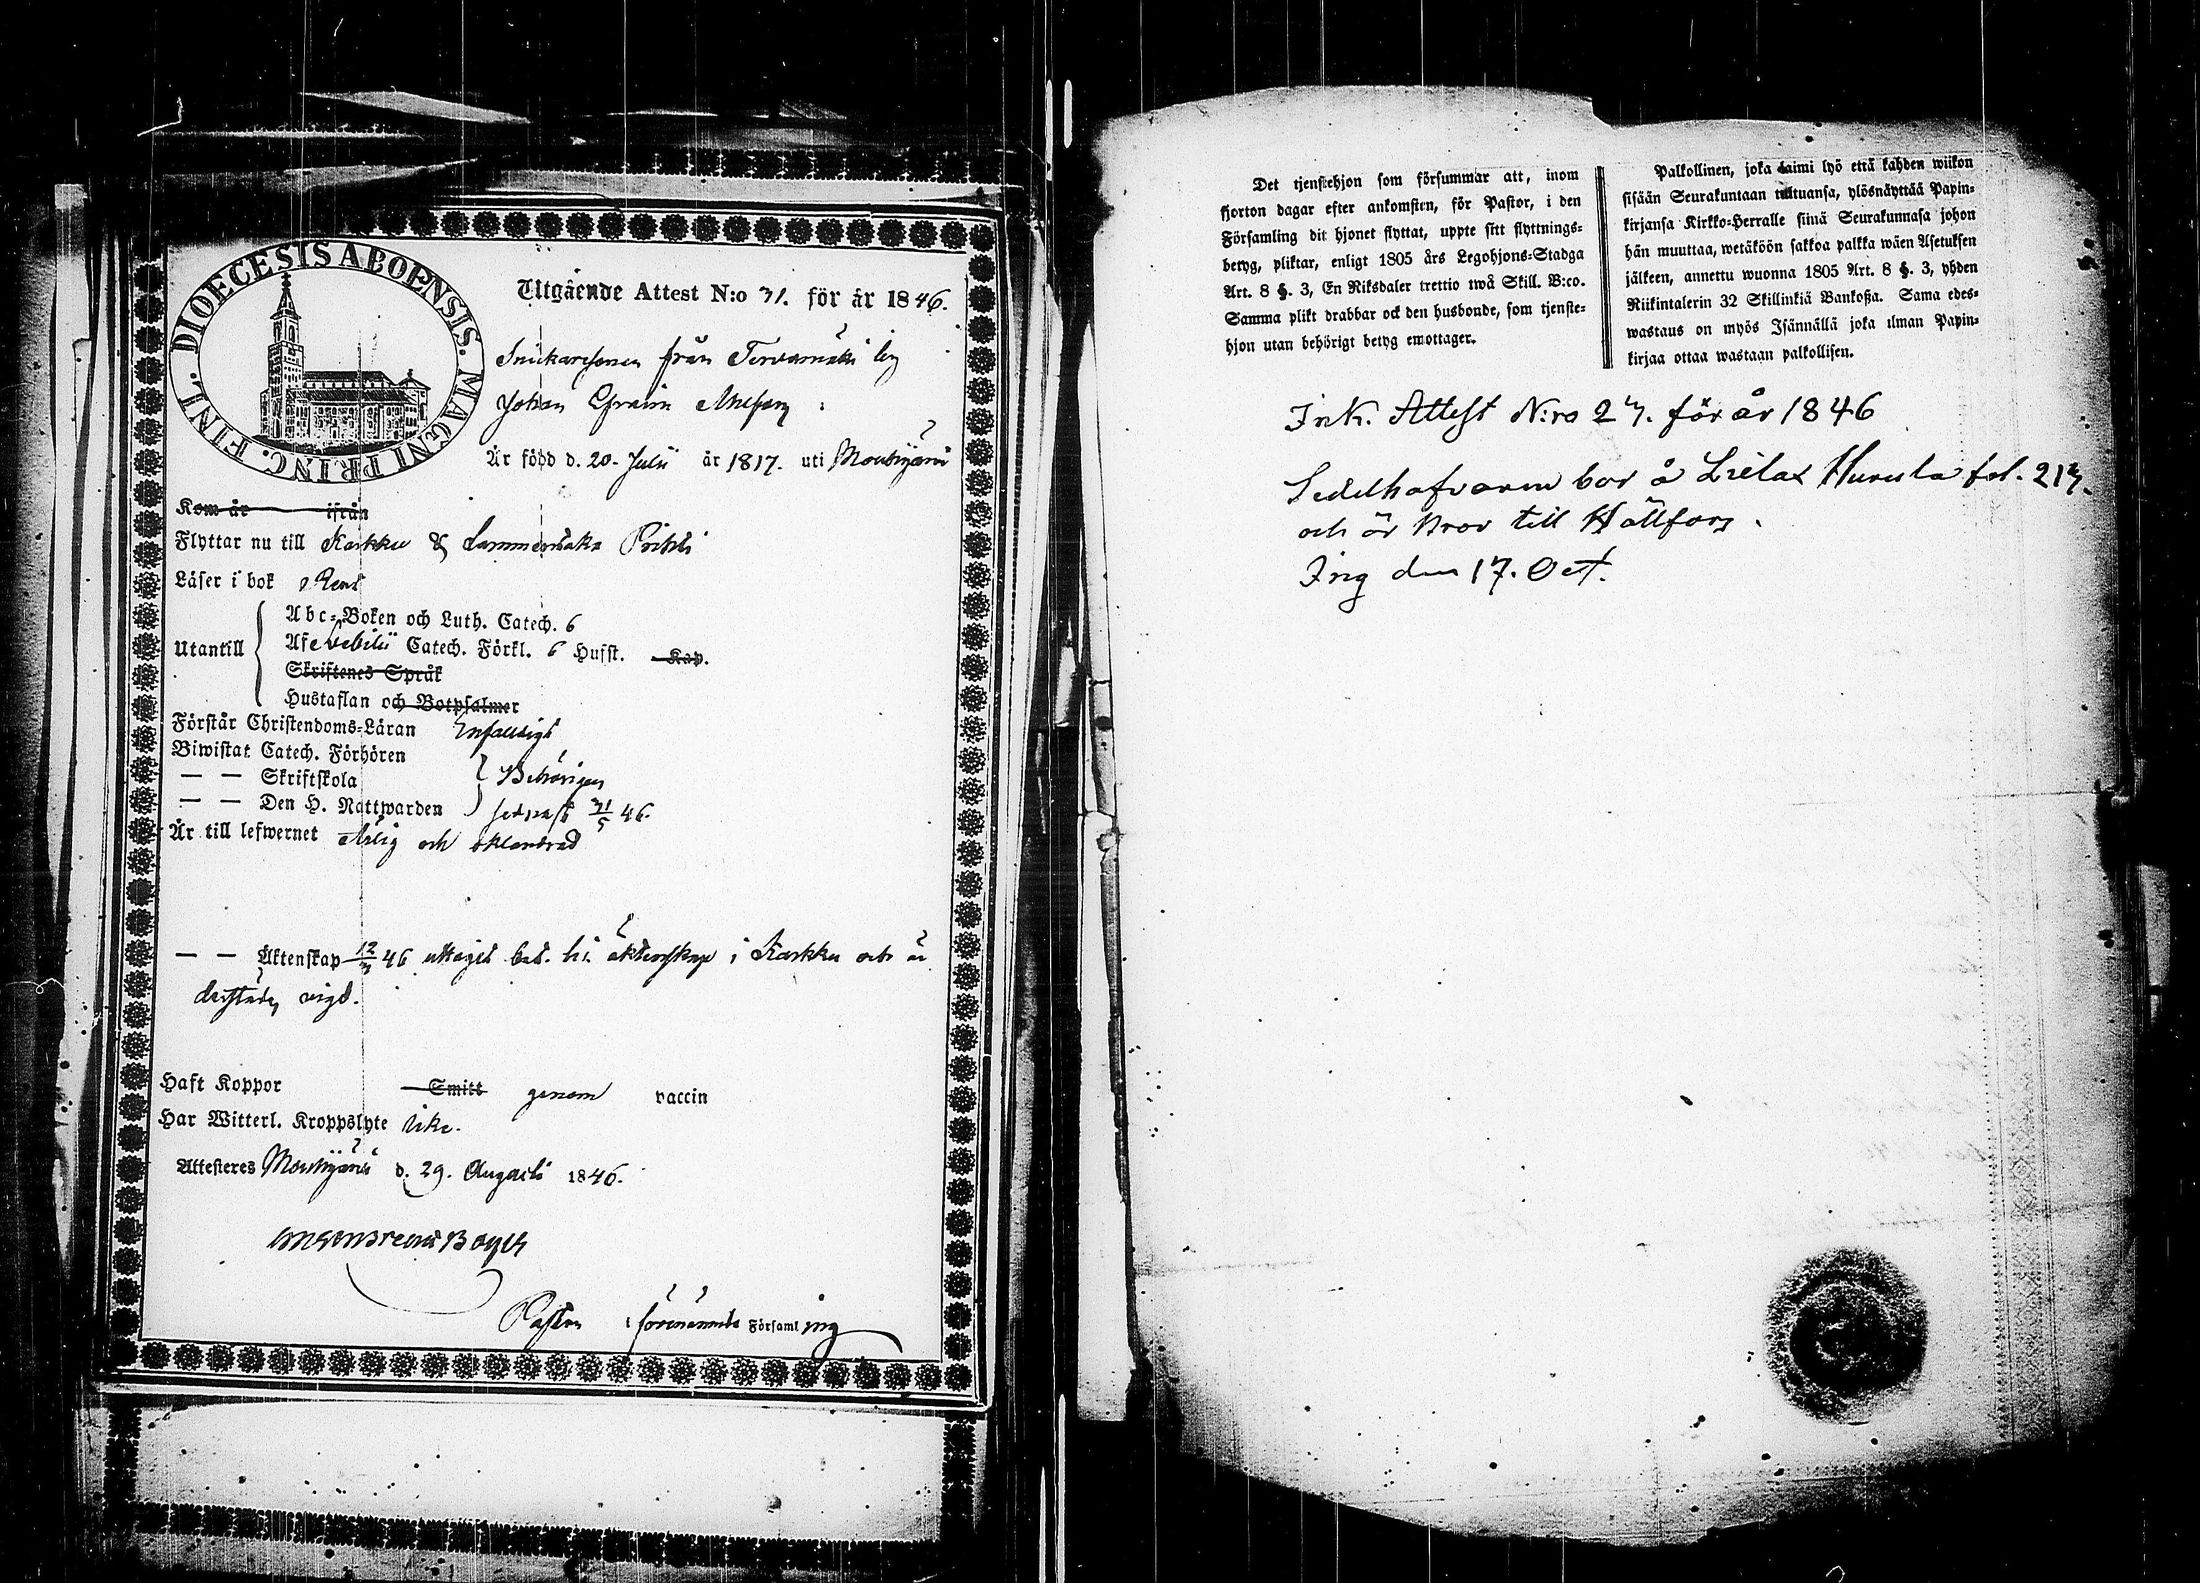 DIOECESIS ABOENSIS. MAGNI PRINC. FINL.
Utgående Attest N:o 31. för år 1846.
Snickaresonen från Tervamäki by
Johan Efraim
Är född d. 20. Julii år 1817. uti Mouhijärvi
Kom år ifrån
Flyttar nu till Karkku &
Läser i bok Rent
Utantill
Abc-Boken och Luth. Catech. 6
Catech. Förkl. 6 Husst. Kap.
Skriftenes Språk
Hustaflan och Botpsalmer
Förstår Christendoms-Läran Enfaldigt
Biwistat Catech. Förhören
— — Skriftskola Behörigen
— — Den H. Nattwarden sednast 31/5 46.
Är till lefwernet Ärlig och oklandrad
— — Äktenskap 12/7 46 uttagit bet. till äktenskap i Karkku och är
derstädes vigd.
Haft Koppor Smitt genom vaccin
Har Witterl. Kroppslyte icke.
Attesteres Mouhijärvi d. 29. Augusti 1846.
Pastor i förenämnde Församling
Det tjenstehjon som försummar att, inom
fjorton dagar efter ankomsten, för Pastor, i den
Församling dit hjonet flyttat, uppte sitt flyttnings-
betyg, pliktar, enligt 1805 års Legohjons-Stadga
Art. 8 §. 3, En Riksdaler trettio twå Skill. B:co.
Samma plikt drabbar ock den husbonde, som tjenste-
hjon utan behörigt betyg emottager.
Palkollinen, joka laimi lyö että kahden wiikon
sisään Seurakuntaan tultuansa, ylösnäyttää Papin-
kirjansa Kirkko-Herralle siinä Seurakunnasa johon
hän muuttaa, wetäköön sakkoa palkka wäen Asetuksen
jälkeen, annettu wuonna 1805 Art. 8 §. 3, yhden
Riikintalerin 32 Skillinkiä Bankoßa. Sama edes-
wastaus on myös Isännällä joka ilman Papin-
kirjaa ottaa wastaan palkollisen.
Ink. Attest N:ro 27. för år 1846
Sedelhafvaren bor å Lielax Hurula fol. 217.
och är Dräng till Hällfors.
Ing den 17. Oct.